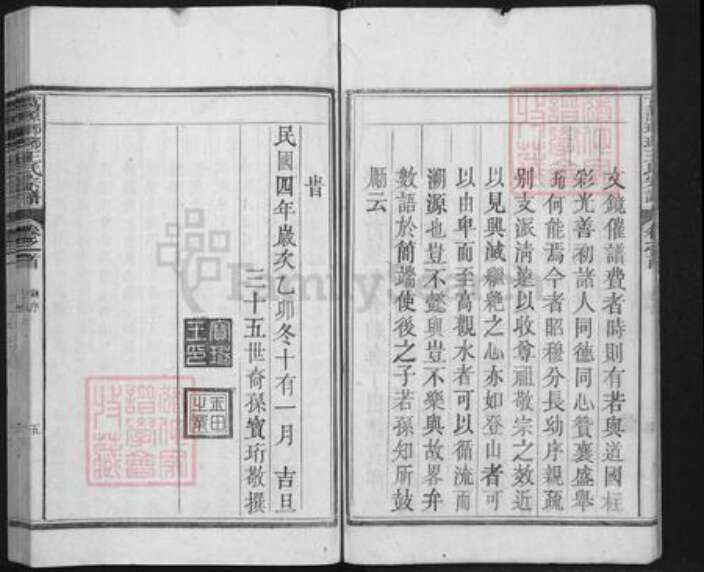 文鏡催諸費者時則有若與道國柱
彩光善初諸人同德同心贊襄盛舉
珩何能焉今者昭穆分長幼序親疏
別支派清遠以收尊祖敬宗之效近
以見興滅繼絕之心亦如登山者可
以由卑而至高觀水者可以循流而
溯源也豈不懿與豈不樂與故畧弁
數語於簡端使後之子若孫知所鼓
勵云
旹
民國四年歲次乙卯冬十有一月 吉旦
三十五世裔孫寶珩敬撰
五